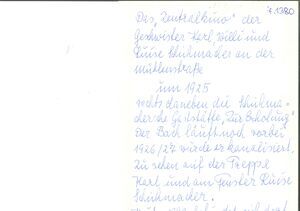 7.1380
Das „Zentralkino" der
Geschwister Karl, Willi und
Luise Schuhmacher an der
Mühlenstraße
um 1925
rechts daneben die Schuhma-
chersche Gaststätte „Zur Erholung"
Der Bach läuft noch vorbei
1926/27 wurde er kanalisiert.
Zu sehen auf der Treppe
Karl und am Fenster Luise
Schuhmacher.